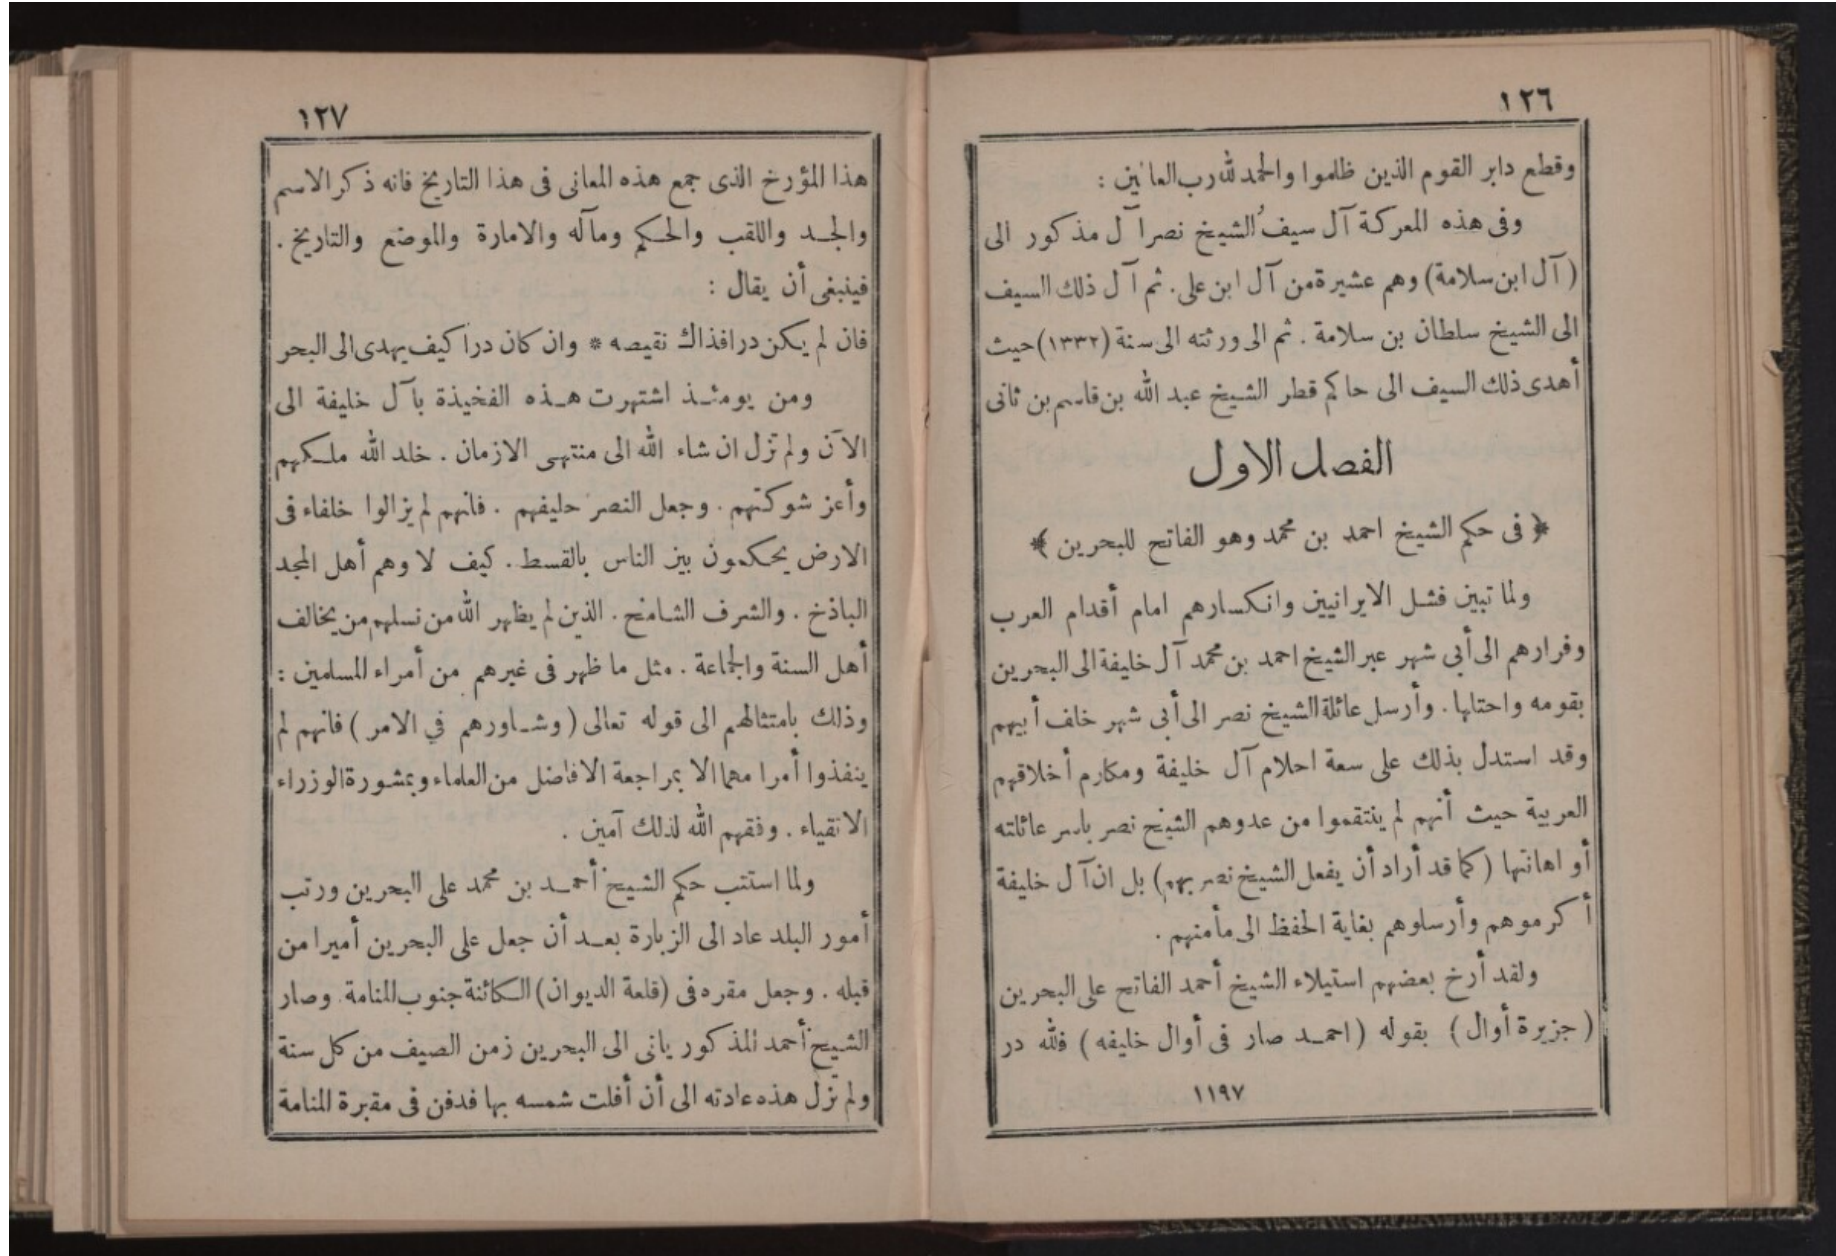 ١٢٦
وقطع دابر القوم الذين ظلموا والحمد لله رب العالمين :
وفى هذه المعركة آل سيف الشيخ نصر آل مذكور الى
( آل ابن سلامة ) وهم عشيرة من آل ابن على . ثم آل ذلك السيف
الى الشيخ سلطان بن سلامة . ثم الى ورثته الى سنة (١٣٣٢) حيث
أهدى ذلك السيف الى حاكم قطر الشيخ عبد الله بن قاسم بن ثانى
الفصل الاول
﴿ فى حكم الشيخ احمد بن محمد وهو الفاتح للبحرين ﴾
ولما تبين فشل الايرانيين وانكسارهم امام أقدام العرب
وفرارهم الى أبى شهر عبر الشيخ احمد بن محمد آل خليفة الى البحرين
بقومه واحتلها . وأرسل عائلة الشيخ نصر الى أبى شهر خلف أبيهم
وقد استدل بذلك على سعة احلام آل خليفة ومكارم أخلاقهم
العربية حيث أنهم لم ينتقموا من عدوهم الشيخ نصر باسر عائلته
أو اهانتها ( كما قد أراد أن يفعل الشيخ نصر بهم ) بل ان آل خليفة
أكرموهم وأرسلوهم بغاية الحفظ الى مأمنهم .
ولقد أرخ بعضهم استيلاء الشيخ أحمد الفاتح على البحرين
( جزيرة أوال ) بقوله ( احمد صار فى أوال خليفه ) فلله در
١١٩٧
١٢٧
هذا المؤرخ الذى جمع هذه المعانى فى هذا التاريخ فانه ذكر الاسم
والجد واللقب والحكم ومآله والامارة والموضع والتاريخ .
فينبغى أن يقال :
فان لم يكن درا فذاك نقيصه * وان كان درا كيف يهدى الى البحر
ومن يومئذ اشتهرت هذه الفخيذة بآل خليفة الى
الآن ولم تزل ان شاء الله الى منتهى الازمان . خلد الله ملكهم
وأعز شوكتهم . وجعل النصر حليفهم . فانهم لم يزالوا خلفاء فى
الارض يحكمون بين الناس بالقسط . كيف لا وهم أهل المجد
الباذخ . والشرف الشامخ . الذين لم يظهر الله من نسلهم من يخالف
أهل السنة والجماعة . مثل ما ظهر فى غيرهم من أمراء المسلمين :
وذلك بامتثالهم الى قوله تعالى ( وشاورهم في الامر ) فانهم لم
ينفذوا أمرا مهما الا بمراجعة الافاضل من العلماء وبمشورة الوزراء
الاتقياء . وفقهم الله لذلك آمين .
ولما استتب حكم الشيخ أحمد بن محمد على البحرين ورتب
أمور البلد عاد الى الزبارة بعد أن جعل على البحرين أميرا من
قبله . وجعل مقره فى (قلعة الديوان) الكائنة جنوب المنامة . وصار
الشيخ أحمد المذكور يأتى الى البحرين زمن الصيف من كل سنة
ولم تزل هذه عادته الى أن أفلت شمسه بها فدفن فى مقبرة المنامة